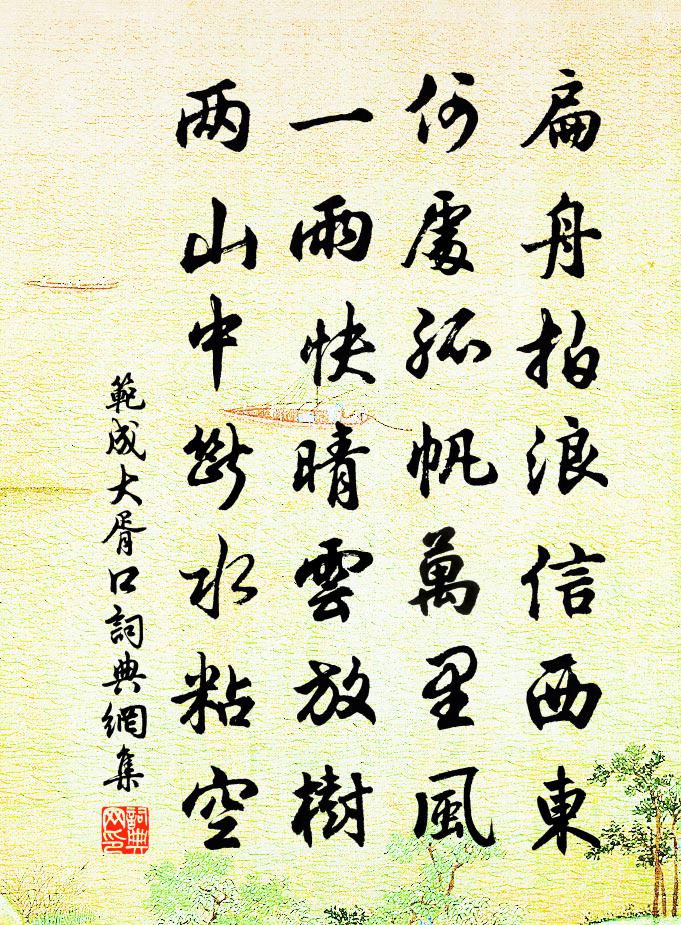 扁舟拍浪信西東
何處孤帆萬里風
一雨快晴雲放樹
两山中斷水粘空
範成大胥口詞典網集
詞典网印